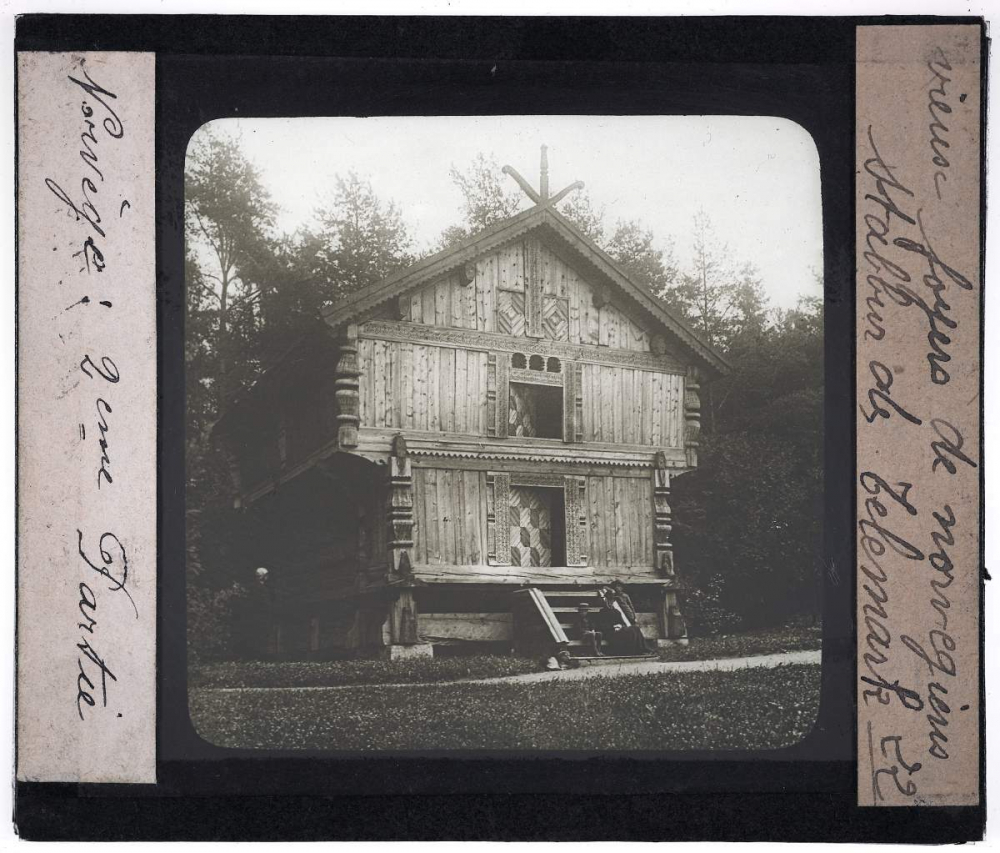 Norvège : 2eme Partie
vieux foyers de norvegiens
Stabbur ob Telemark 22